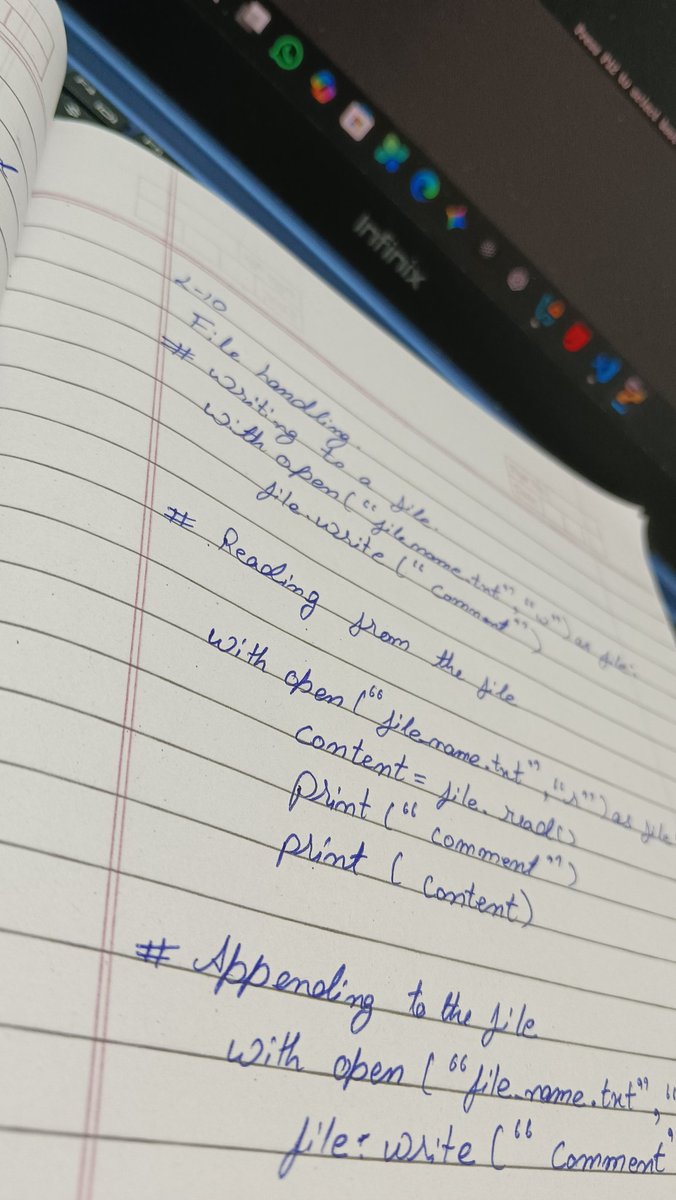 Press F12 to select boo
Infinix
L-10
File handling.
# writing to a file.
with open(“file.name.txt”, “w”) as file:
file.write (“Comment”)
# Reading from the file
with open (“file.name.txt”, “r”) as file
content = file.read()
print (“comment”)
print ( content)
# Appending to the file
with open (“file.name.txt”, “
file.write (“ Comment”